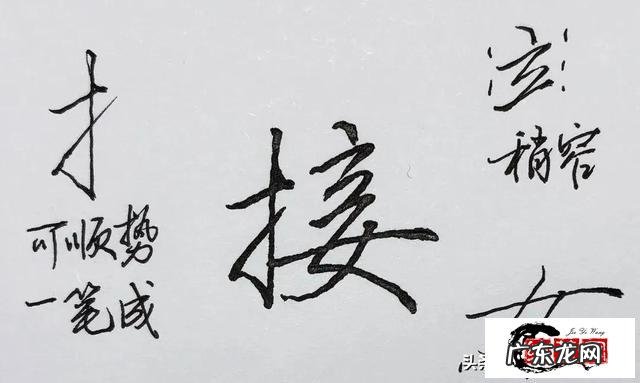 扌
可顺势
一笔成
接
立
稍窄
女
头条
Jia Yu Wang
广东龙网